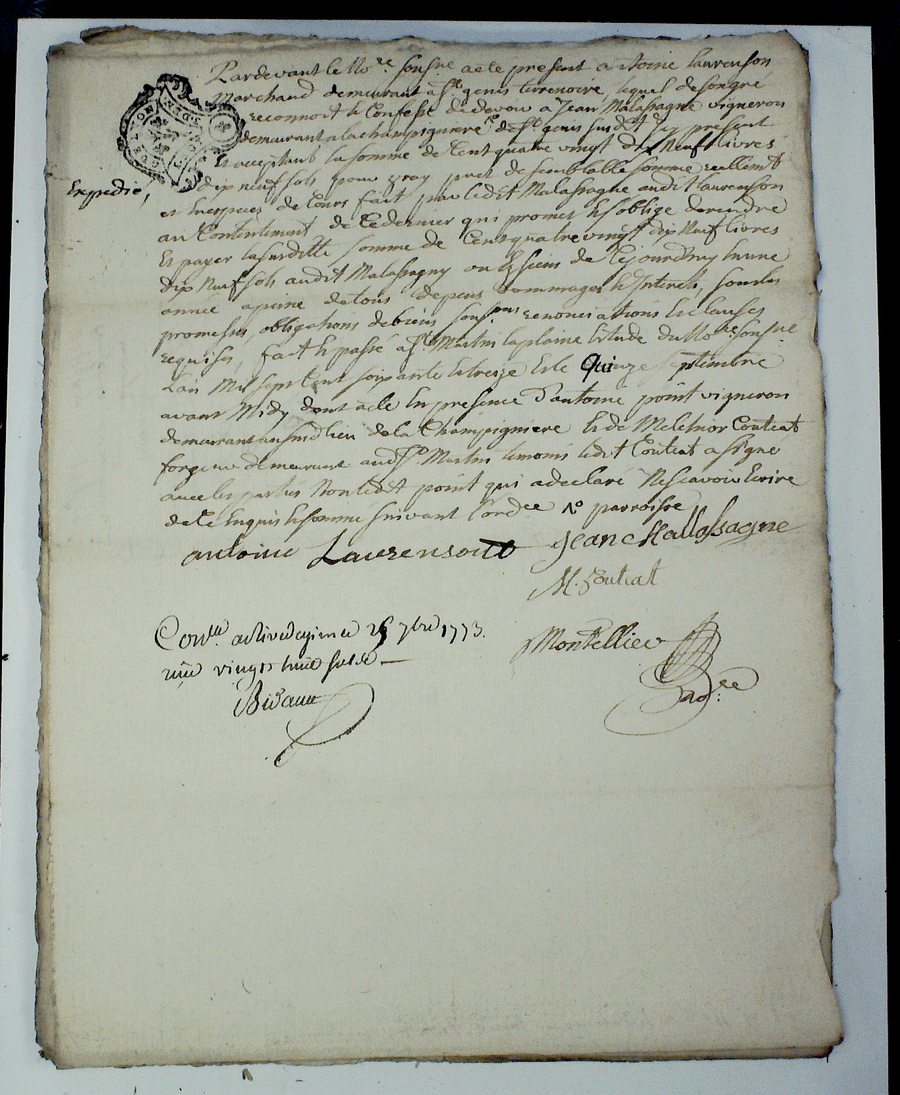 Pardevant le No.re sous.né acte present antoine Laurenson
Marchand demeurant a S.t genis terrenoire, lequel de son gré
reconnoit et Confesse de devoir a Jean Malassagne vigneron
demeurant a la champigniere p.se de S.t genis susdit icy present
Et acceptant la somme de Cent quatre vingt dix Neuf livres
Expedié
dix neuf sols pour vray pret de semblable somme reellemt
et En especes de Cours fait par ledit Malassagne audit Laurenson
au Contentement de Ce dernier qui promet Et s'oblige de rendre
Et payer la susditte somme de Cent quatre vingt dix Neuf livres
dix Neuf sols audit Malassagny ou Es siens de Cejourdhuy En une
année a peine de tous depens dommages Et Interets, sous les
promesses, obligations de biens sous.ons renonciations Et clauses
requises, fait Et passé a S.t Martin la plaine Etude du No.re sous.né
L'an Mil sept Cent soixante Et treize Et le Quinze septembre
avant Midy dont acte En presence d'antoine point vigneron
demeurant au susd lieu de la Champigniere Et de Melchior Coutrat
forgeur demeurant aud S.t Martin temoins ledit Coutrat a signé
avec les parties Non ledit point qui a declaré Ne scavoir Ecrire
de Ce Enquis Et sommé suivant l'ord.ce N.o parroisse
antoine Laurenson Jean Mallassagne
M. Coutrat
Con.lle a Rivedegier ce 25 7bre 1773.
vingt huit sols
Montellier
No.re